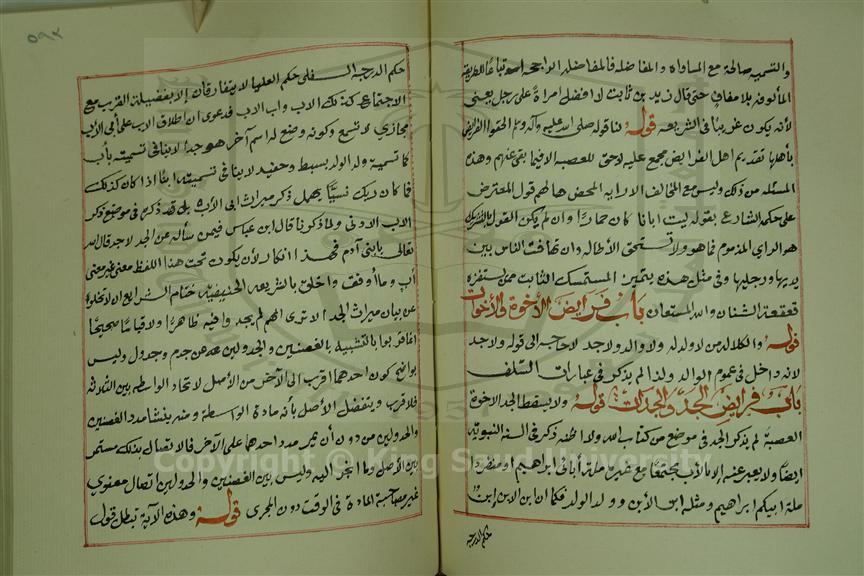 والتسمية صالحة مع المساواة والمفاضلة فالمفاضلة الراجحة اتباعا للطريقة
المألوفة بلا مفاق حتى قال زيد بن ثابت لا افضل امرأة على رجل يعني
لأنه يكون غريبا في الشريعة قوله لنا قوله صلى الله عليه وآله وسلم الحقوا الفرائض
بأهلها تقديم اهل الفرائض مجمع عليه لاحق للعصبة الا فيما بقي عنهم وهذه
المسئلة من ذلك وليس مع المخالف الا رايه المحض هالهم قول المعترض
على حكمة الشارع بقوله ليت ابانا كان حمارا وان لم يكن القول بالتشريك
هو الراي المذموم فما هو ولا تستحق الأطالة وان تهافت الناس بين
يديها ورجليها وفي مثل هذه يتميز المستمسك الثابت ممن تستفزه
قعقعة الشنان والله المستعان باب فرايض الأخوة والأخوات
قوله والكلالة من لا ولد له ولا والد ولا جد لا حاجة الى قوله ولا جد
لانه داخل في عموم الوالد ولذا لم يذكر في عبارات السلف
باب فرايض الجد والجدات قوله ولا يسقط الجد الاخوة
العصبة لم يذكر الجد في موضع من كتاب الله ولا اظنه ذكر في السنة النبوية
ايضا ولا يعبر عنه الا بالأب مجتمعا مع غيره ملة أبائي ابراهيم او منفردا
ملة ابيكم ابراهيم ومثله ابن الأبن وولد الولد فكما ان ابن الابن ابن
حكم الدرجة
٥٩٢
حكم الدرجة السفلى حكم العليا لا يتفارقان إلا بفضيلة القرب مع
الاجتماع كذلك الاب واب الاب فدعوى ان اطلاق الاب على أبي الأب
مجازي لا تسمع وكونه وضع له اسم آخر هو جد لا ينافي تسميته بأب
كما تسمية ولد الولد بسبط وحفيد لا ينافي تسميته ابنا اذا كان كذلك
فما كان ربك نسيا يهمل ذكر ميراث ابي الأب بلى قد ذكره في موضع ذكر
الاب الادنى ولما ذكرنا قال ابن عباس فيمن سأله عن الجد لا جد قال الله
تعالى يا بني آدم فهذا انكار لأن يكون تحت هذا اللفظ معنى غير معنى
أب وما أوفق واخلق بالشريعة الحنيفية ختام الشرايع ان لا تخلوه
عن بيان ميراث الجد الا ترى انهم لم يجدوا فيه ظاهرا ولا قياسا صحيحا
انما قربوا بالتشبيه بالغصنين والجدولين عن جرم وجدول وليس
بواضح كون احدهما اقرب الى الآخر من الأصل لاتحاد الواسطة بين الثلاثة
فلا قرب ويتفضل الأصل بأنه مادة الواسطة ومنه ينشأ مدد الغصنين
والجدولين من دون أن يمر مدد احدهما على الآخر فالاتصال بذلك مستمر
بين الأصل وما انجر اليه وليس بين الغصنين والجدولين اتصال معنوي
غير مصاحبة المادة في الوقت دون المجرى قوله وهذه الآية تبطل قول
Copyright © King Saud University
1957